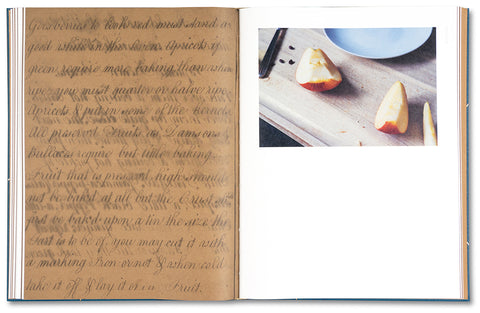 Goosberries to look red must stand a
good while in the Oven. Apricots if
green require more baking than when
ripe, you must quarter or halve ripe
Apricots & put in some of the Kernels
All preserv'd Fruits as Damsons &
Bullaces require but little baking.
Fruit that is preserv'd high should
not be bak'd at all but the Crust
first be bak'd upon a tin the size the
Tart is to be of, you may cut it with
a marking Iron or not & when cold
take it off & lay it on Fruit.